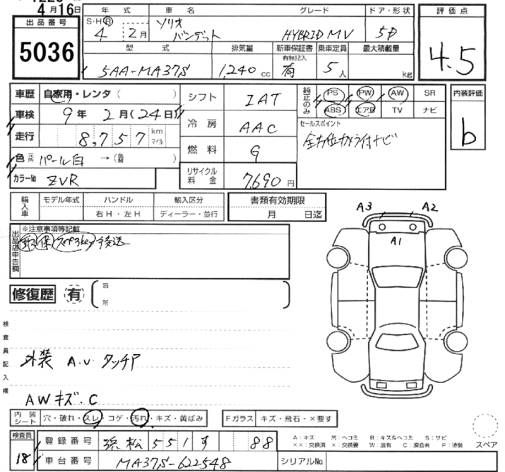 4月16日
出品番号
5036
年式 車名 グレード ドア・形状
S・H・R 4 2月 ソリオ バンデット HYBRID MV 5D
型式 排気量 新車保証書 乗車定員 最大積載量
5AA-MA37S 1240cc 有無記入 有 5人 kg
評価点
4.5
車歴 自家用・レンタ
車検 9年2月(24日)
走行 8,757 km マイル
色 パール白 →
カラーNo ZVR
シフト IAT
冷房 AAC
燃料 G
リサイクル料金 7,690円
純正のみ PS PW AW SR
ABS エアB TV ナビ
セールスポイント
全方位カメラ付ナビ
内装評価
b
輸入車 モデル年式 ハンドル 輸入区分
右H・左H ディーラー・並行
書類有効期限
月 日迄
出品店申告欄
※注意事項等記載
後送
修復歴 有
箇所
検査員記入欄
外装 A.U タッチP
AWキズ.C
A3 A2
A1
内装シート 穴・破れ・スレ・コゲ・汚れ・キズ・黄ばみ
Fガラス キズ・飛石・×要す
検査員
18
登録番号 浜松 551 す 88
車台番号 MA37S-622548
シリアルNo.
A:キズ U:ヘコミ B:キズ&ヘコミ S:サビ
××:交換済 ×:要交換 W:波有 C:腐食 P:塗装
スペア